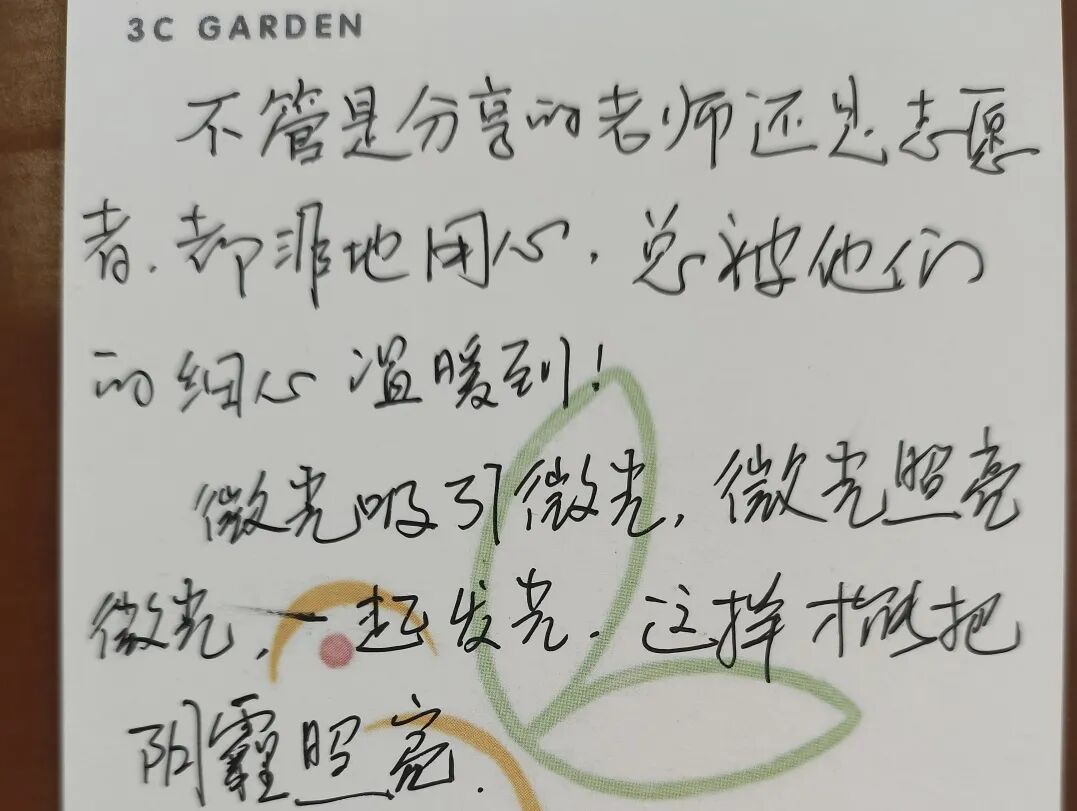 3C GARDEN
不管是分享的老师还是志愿
者.都非地用心.总被他们
的细心温暖到!
微光吸引微光,微光照亮
微光,一起发光.这样才能把
阴霾照亮.